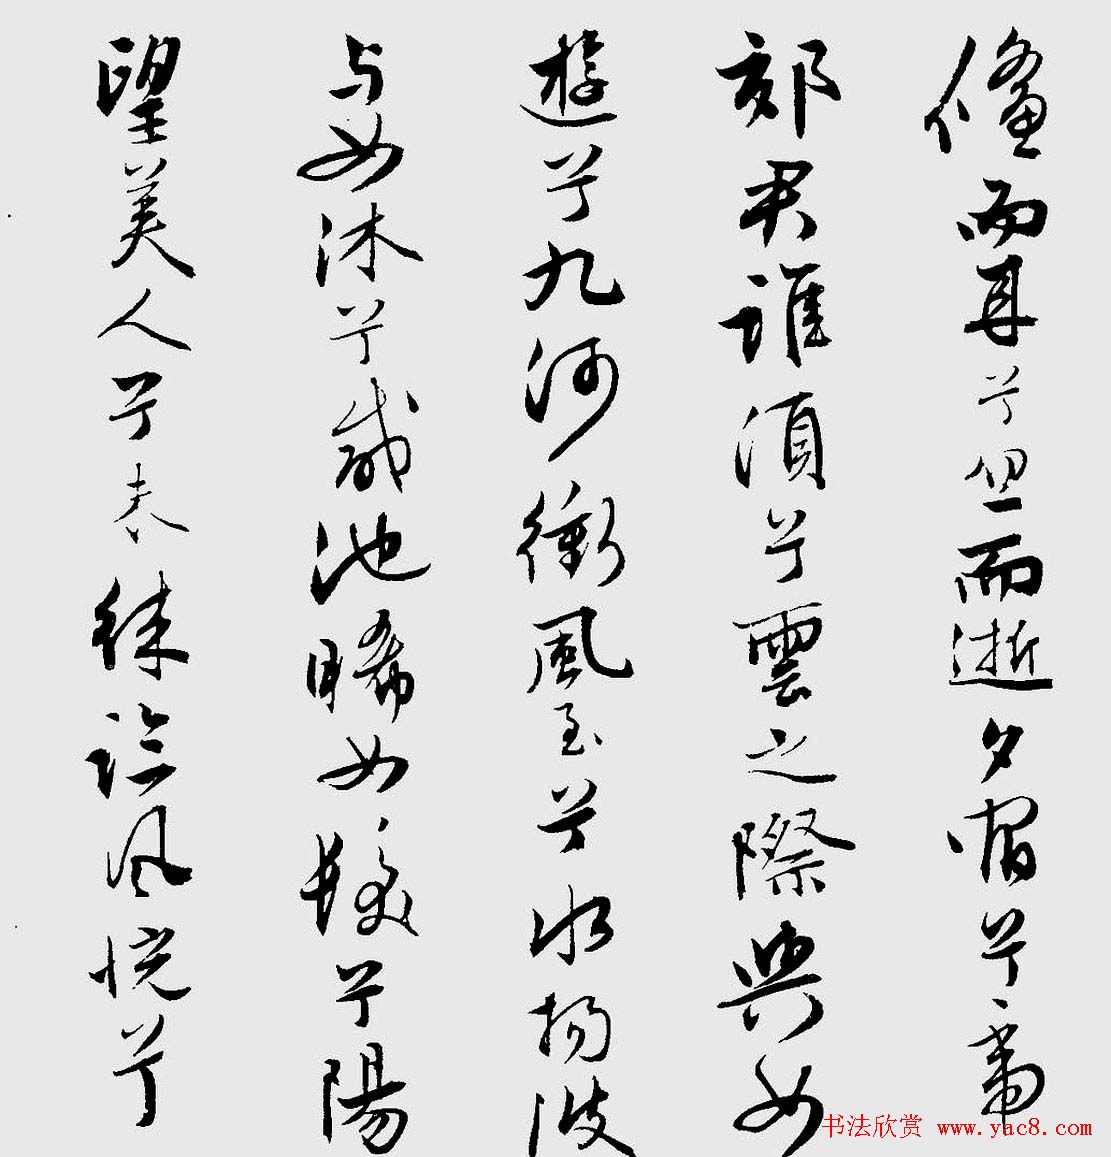 儵而兮忽而逝夕宿兮帝
郊君誰須兮雲之際與女
遊兮九河衝風至兮水揚波
与女沐兮咸池晞女髮兮陽
望美人兮徠臨風怳兮
书法欣赏 www.yac8.com